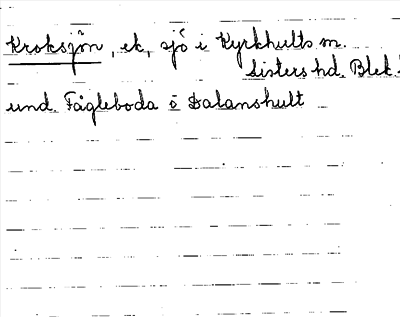 Kroksjön, ek, sjö i Kyrkhults sn.
Listers hd. Blek.
und. Fågleboda o Dalanshult